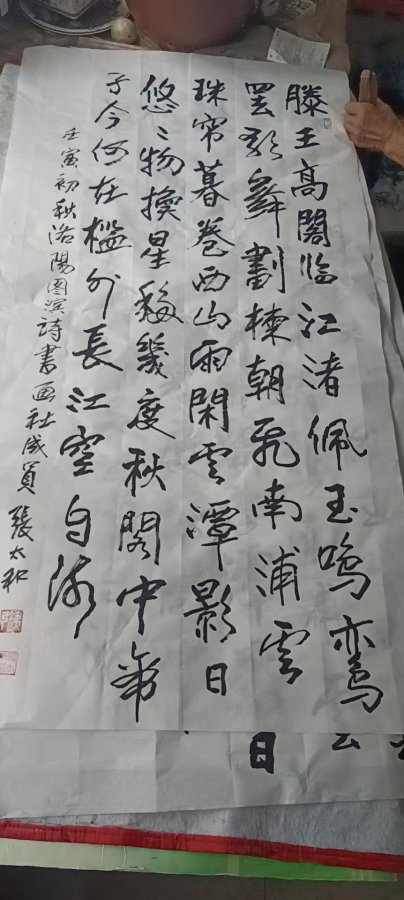 滕王高閣临江渚佩玉鸣鸾
罢歌舞劃棟朝飛南浦雲
珠帘暮卷西山雨閑雲潭影日
悠〻物換星移幾度秋閣中帝
子今何在檻外長江空自流
壬寅初秋洛陽滨詩書画社成員張太和
云
日